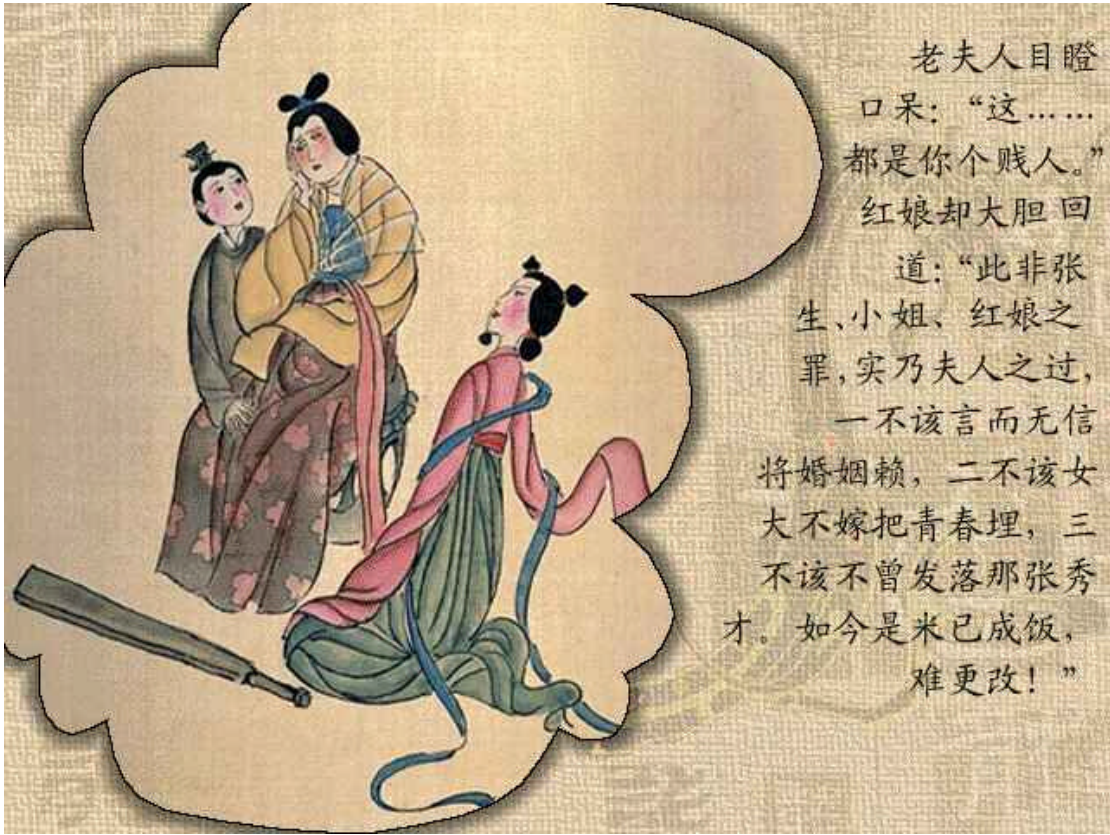 老夫人目瞪
口呆：“这……
都是你个贱人。”
红娘却大胆回
道：“此非张
生、小姐、红娘之
罪，实乃夫人之过，
一不该言而无信
将婚姻赖，二不该女
大不嫁把青春埋，三
不该不曾发落那张秀
才。如今是米已成饭，
难更改！”